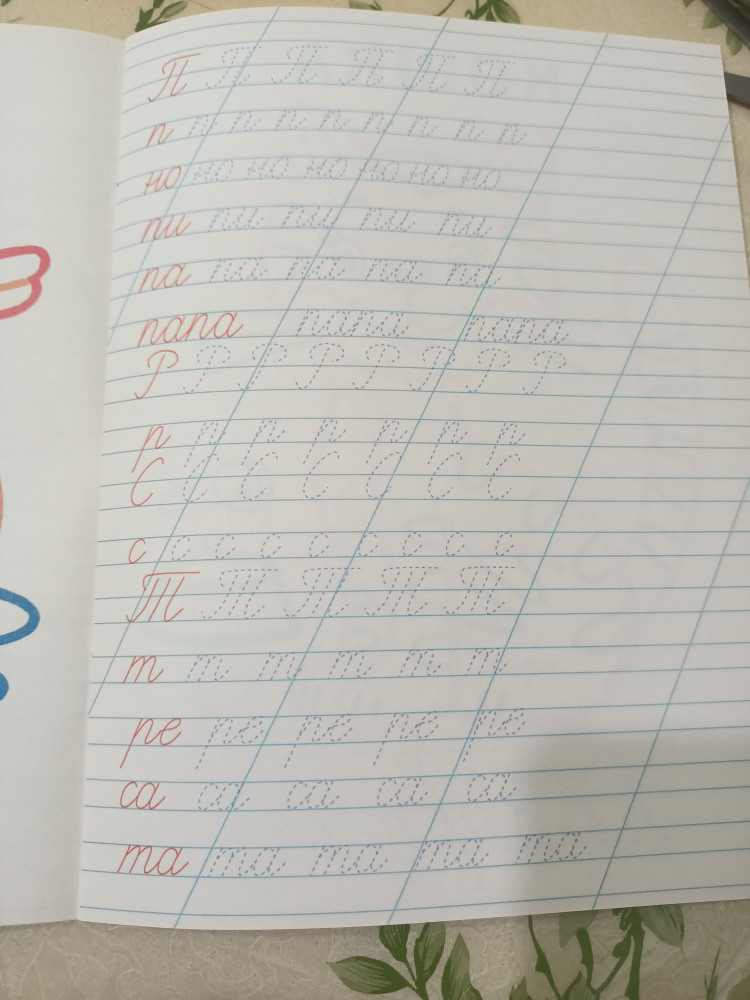 П П П П П П
п п п п п п п п п
но но но но но но но
пи пи пи пи пи
па па па па па
папа папа папа
Р Р Р Р Р Р Р Р
р р р р р р р
С С С С С С С
с с с с с с с с с
Т Т Т Т Т
т т т т т т
ре ре ре ре ре
са са са са са
та та та та та